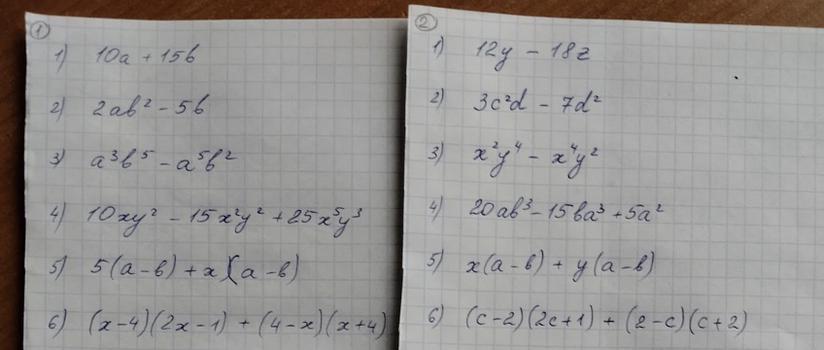 ①
1) 10a + 15b
2) 2ab² - 5b
3) a³b⁵ - a⁵b²
4) 10xy² - 15x²y² + 25x⁵y³
5) 5(a-b) + x(a-b)
6) (x-4)(2x-1) + (4-x)(x+4)
②
1) 12y - 18z
2) 3c²d - 7d²
3) x²y⁴ - x⁴y²
4) 20ab³ - 15ba³ + 5a²
5) x(a-b) + y(a-b)
6) (c-2)(2c+1) + (2-c)(c+2)